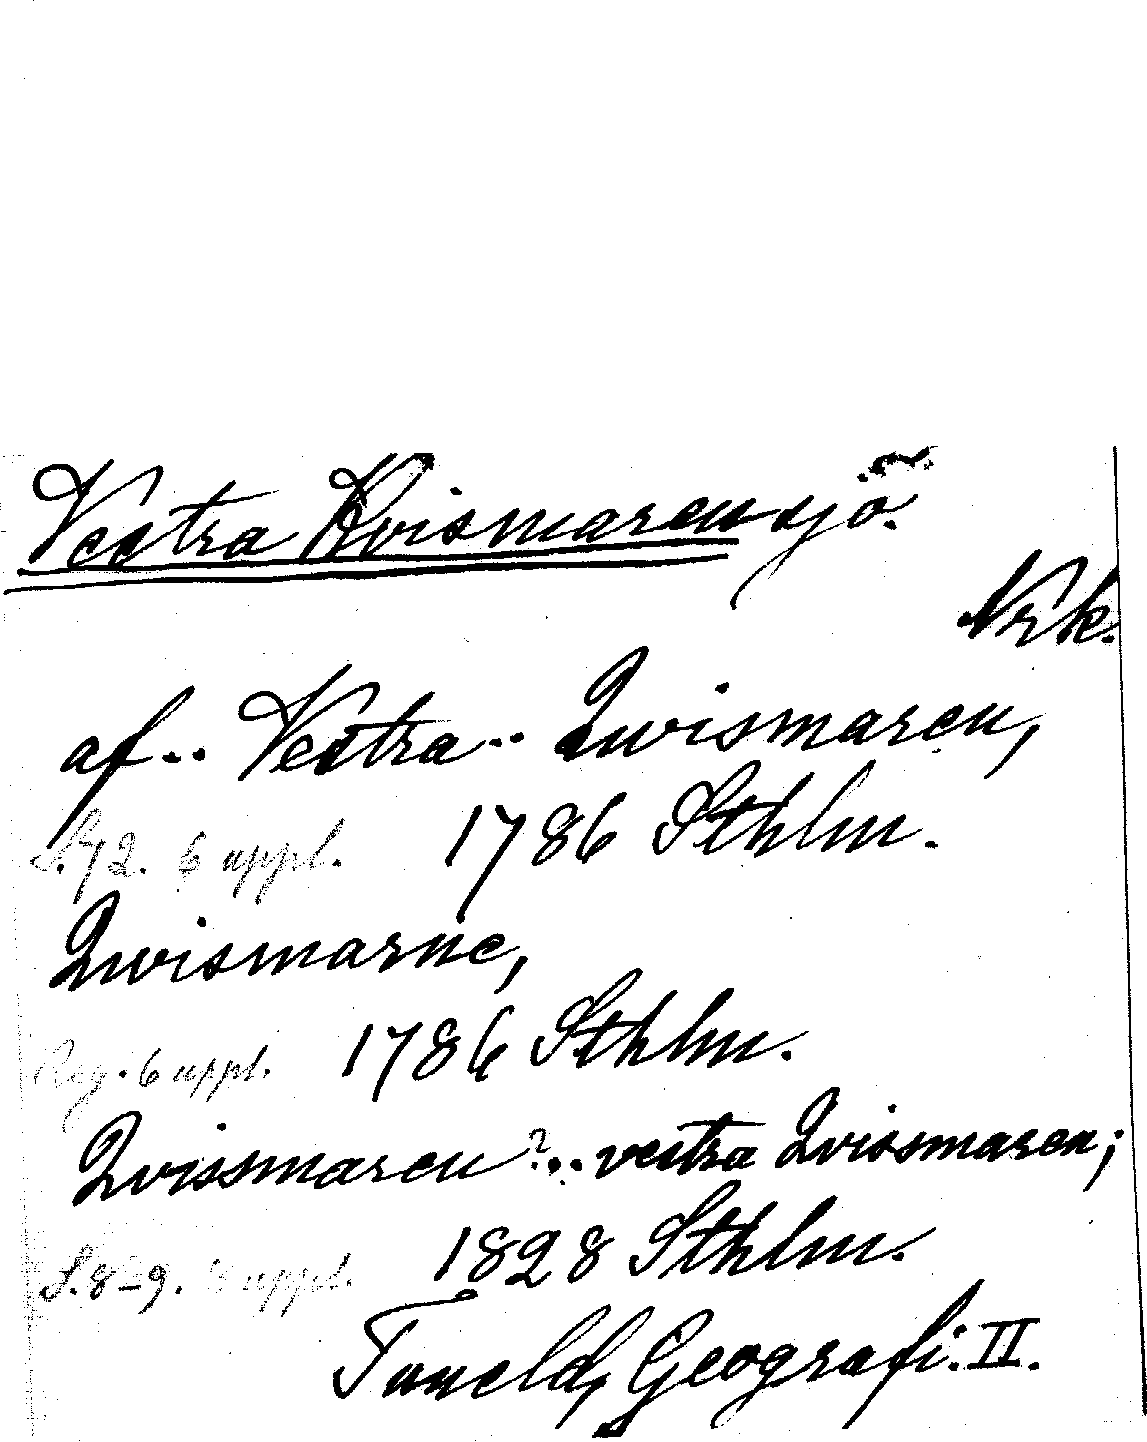 Vestra Kvismaren sjö.
Nrk.
af.. Vestra.. Qwismaren,
S. 72. 6 uppl. 1786 Sthlm.
Qwismarne,
Reg. 6 uppl. 1786 Sthlm.
Qvissmaren ?.. vestra Qvissmaren;
S. 8-9. uppl. 1828 Sthlm.
Tuneld, Geografi. II.